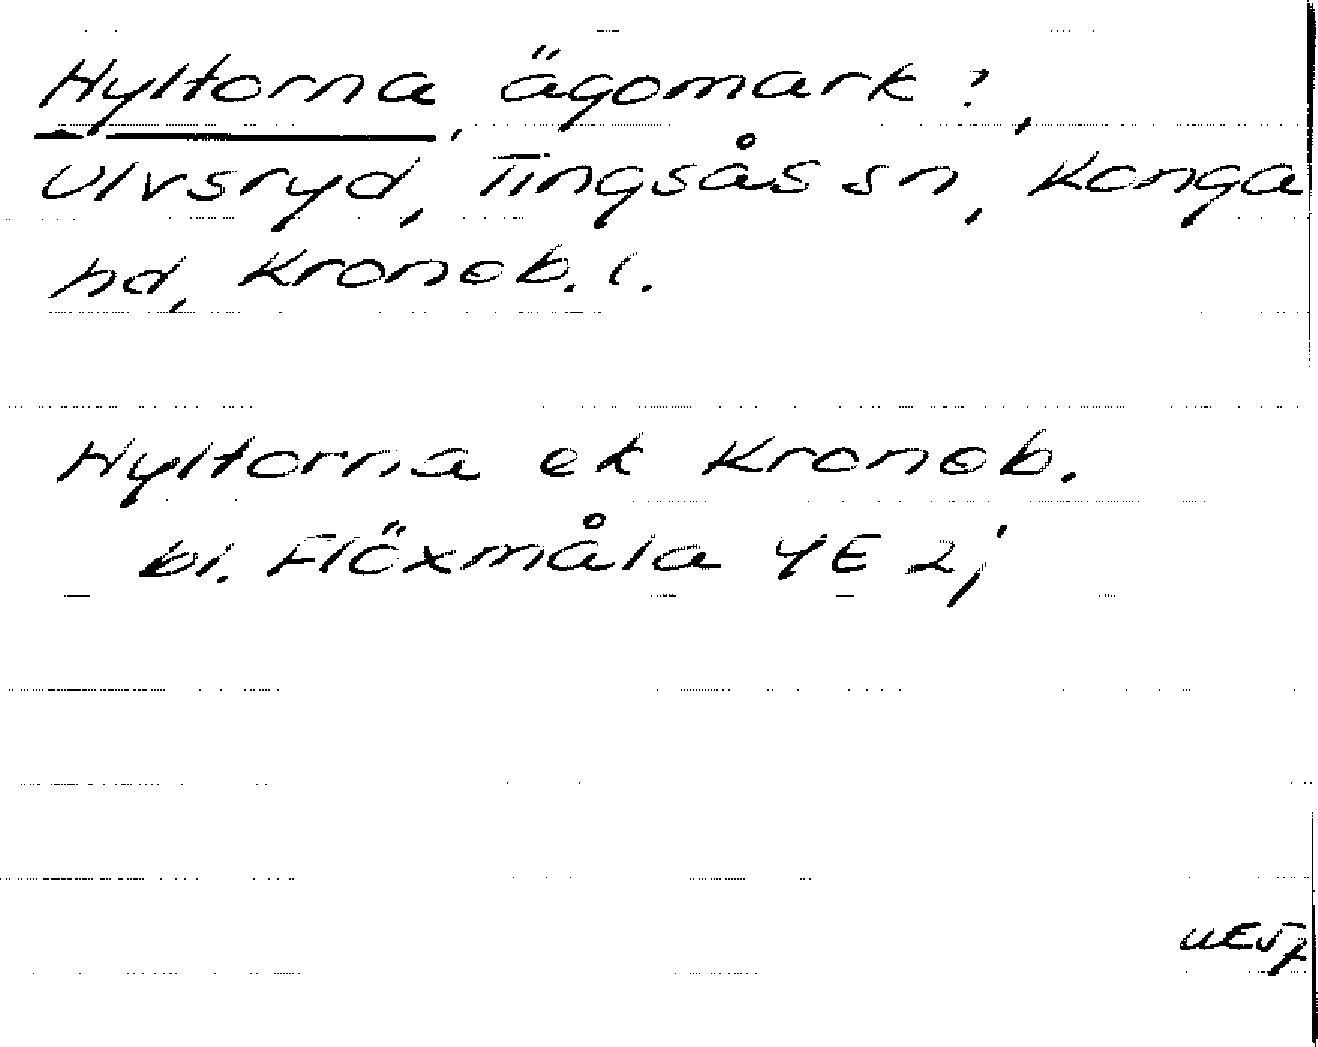 Hyltorna, ägomark?,
Ulvsryd, Tingsås sn, Konga
hd, Kronob. l.
Hyltorna ek Kronob.
bl. Flöxmåla 4E 2j